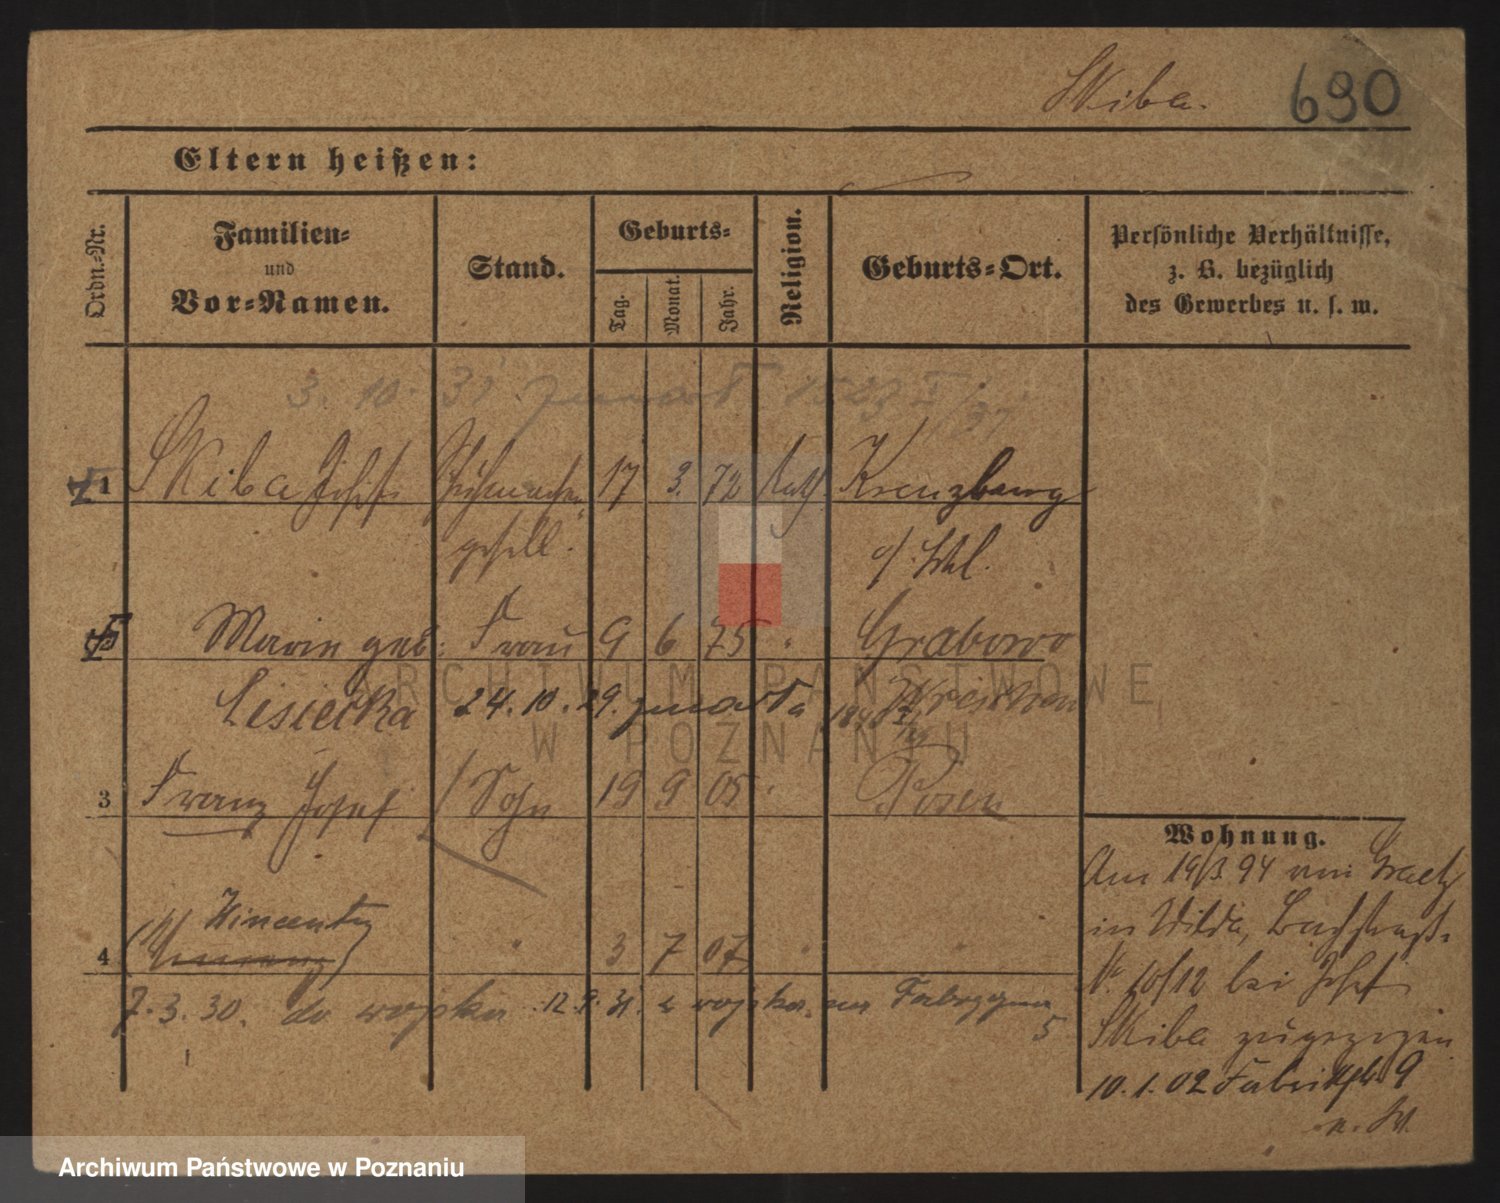 Skiba. 690
Eltern heißen:
Ordn.-Nr.
Familien-
und
Vor-Namen.
Stand.
Geburts-
Tag.
Monat.
Jahr.
Religion.
Geburts-Ort.
Persönliche Verhältnisse,
z. B. bezüglich
des Gewerbes u. s. w.
3. 10. 31 zmarł
1 Skiba Josef Schuhmacher 17 3. 72 kath Kreuzburg
gesell. o/Schl.
Marie geb. Frau 9 6 75 Grabowo
Lisiecka 24.10.29. zmarła
3 Franz Josef Sohn 19 9 05 Posen
4 Wincenty 3 7 07
7.3.30. do wojska 12.9.31. z wojska na Fabryczna
5
Wohnung.
Am 19/3 94 von
in Wilda, Bachstraße
No 10/12 bei Josef
Skiba zugezogen
10.1.02 Fabrikstr 9
ARCHIWUM PAŃSTWOWE
W POZNANIU
Archiwum Państwowe w Poznaniu